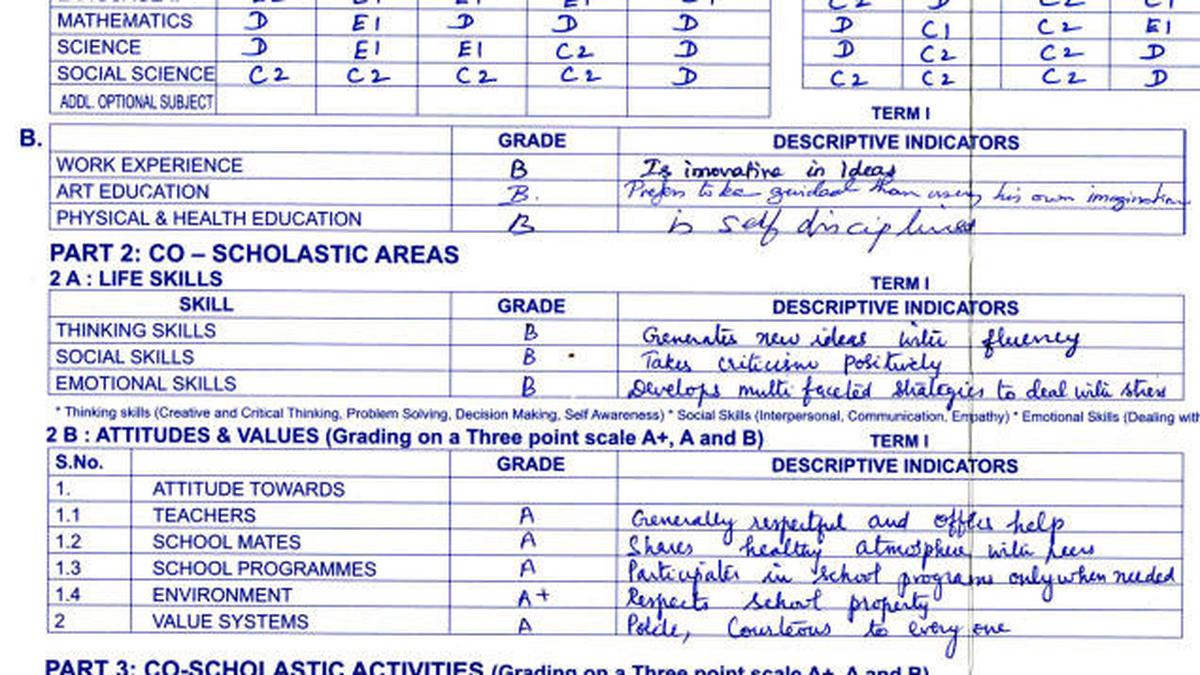 MATHEMATICS D E1 D D D D C1 C2 E1
SCIENCE D E1 E1 C2 D D C2 C2 D
SOCIAL SCIENCE C2 C2 C2 C2 D C2 C2 C2 D
ADDL. OPTIONAL SUBJECT
TERM I
B. GRADE DESCRIPTIVE INDICATORS
WORK EXPERIENCE B Is imovative in Ideas
ART EDUCATION B. Prefers to be guided than using his own imagination
PHYSICAL & HEALTH EDUCATION B is self disciplined
PART 2: CO – SCHOLASTIC AREAS
2 A : LIFE SKILLS TERM I
SKILL GRADE DESCRIPTIVE INDICATORS
THINKING SKILLS B Generates new ideas with fluency
SOCIAL SKILLS B Takes criticism positively
EMOTIONAL SKILLS B Develops multi faceted strategies to deal with stress
* Thinking skills (Creative and Critical Thinking, Problem Solving, Decision Making, Self Awareness) * Social Skills (Interpersonal, Communication, Empathy) * Emotional Skills (Dealing with
2 B : ATTITUDES & VALUES (Grading on a Three point scale A+, A and B) TERM I
S.No. GRADE DESCRIPTIVE INDICATORS
1. ATTITUDE TOWARDS
1.1 TEACHERS A Generally respectful and offers help
1.2 SCHOOL MATES A Shares healthy atmosphere with peers
1.3 SCHOOL PROGRAMMES A Participates in school programs only when needed
1.4 ENVIRONMENT A+ Respects school property
2 VALUE SYSTEMS A Polite, Courteous to every one
PART 3: CO-SCHOLASTIC ACTIVITIES (Grading on a Three point scale A+, A and B)